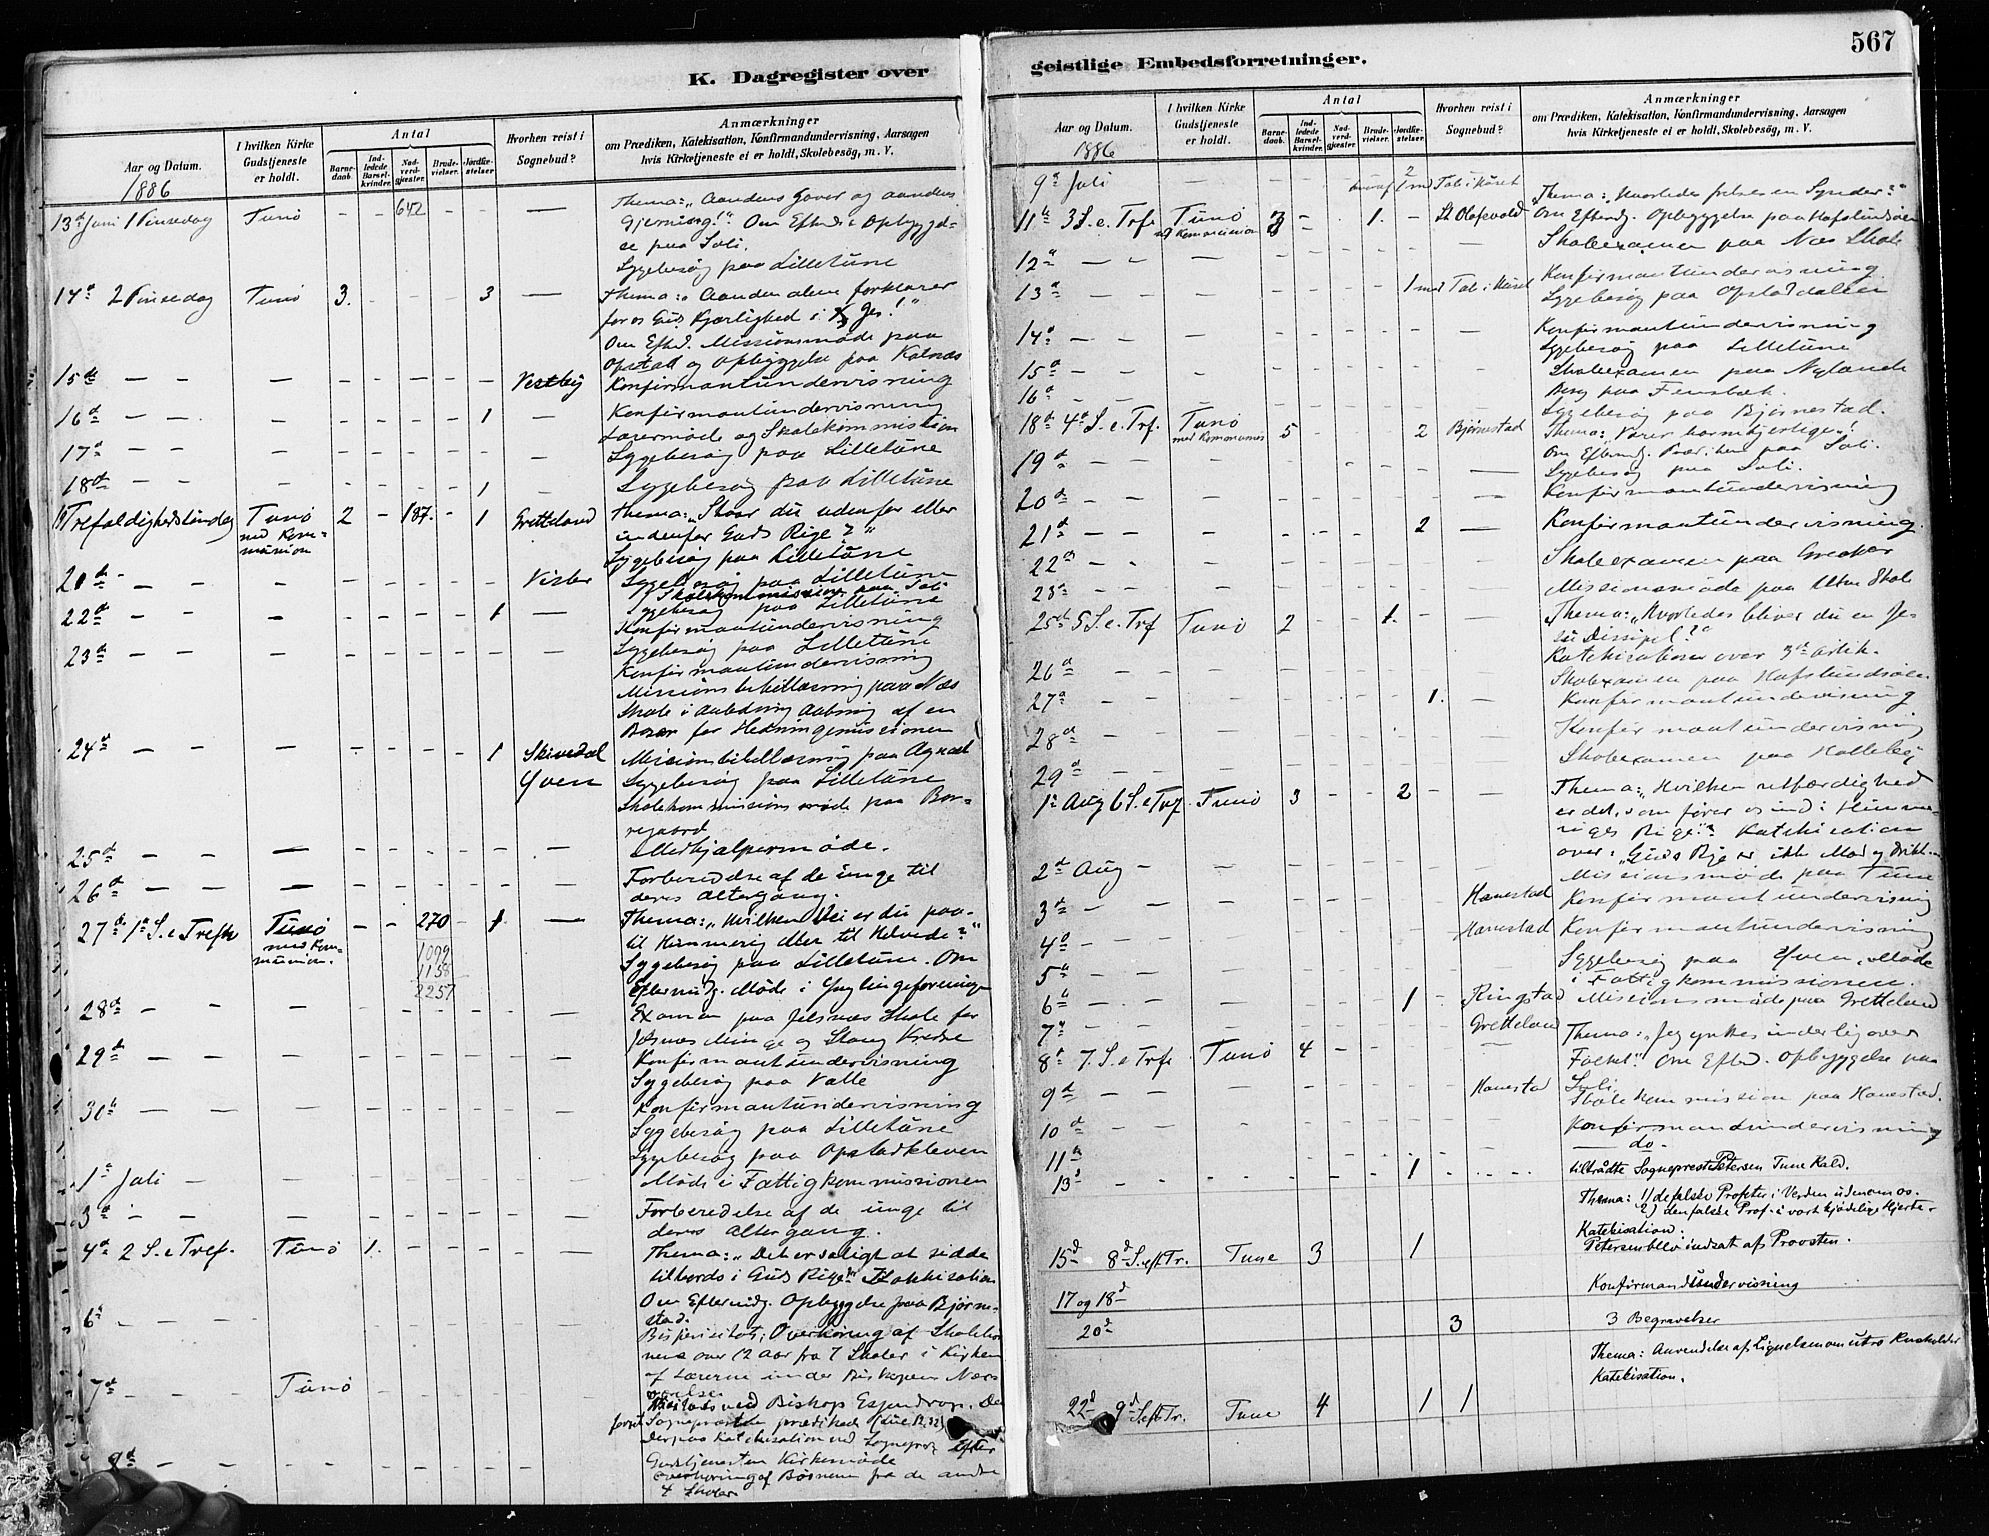 K. Dagregister over
Aar og Datum.
1886
I hvilken Kirke Gudstjeneste er holdt.
Antal
Barnedaab.
Indledede Barselkvinder.
Nadverdgjæster.
Brudevielser.
Jordfæstelser
Hvorhen reist i Sognebud?
Anmærkninger
om Prædiken, Katekisation, Konfirmandundervisning, Aarsagen
hvis Kirketjeneste ei er holdt, Skolebesøg, m. V.
13de Juni 1 Pinsedag Tunø - - 642 - - — Thema: "Aandens Gaver og aandens
Gjerning!" Om Efterd. Opbyggel-
se paa Soli.
Sygebesøg paa Lilletune
14d 2 Pinsedag Tunø 3. - - - 3 — Thema: "Aanden alene forklarer
for os Guds Kjærlighed i Jes!"
Om Efterd. Missionsmøde paa
Opstad og Opbyggelse paa Kalnæs
15de — — — - - - - - Vestby Konfirmantundervisning
16d — — — - - - - 1 — Konfirmantundervisning
Lærermøde og Skolekommission
17d — — — - - - - - — Sygebesøg paa Lilletune
18de — — - - - - - 1 - Sygebesøg paa Lilletune
Trefoldighedssøndag Tunø 2 - 187. - 1 Gretteland Thema: "Staar du udenfor eller
med Kom-
munion
indenfor Guds Rige?"
Sygebesøg paa Lilletune
20de — — - - - - - - Vister Sygebesøg paa Lilletune
Skolekommission paa Soli
22de — - - - - - - 1 — Sygebesøg paa Lilletune
Konfirmantundervisning
23de — — - - - - - - — Sygebesøg paa Lilletune
Konfirmantundervisning
Missionsbibellæsning paa Næs
Skole i anledning Aabning af en
Bazar for Hedningemissionen
24d — — — - - - - 1 Skivedal Missionsbibellæsning paa Agnalt
Yven Sygebesøg paa Lilletune
Skolekommissionsmøde paa Bor-
regaard
25de — — — - - - - - — Medhjælpermøde.
26d — — — - - - - - — Forberedelse af de unge til
deres Altergang.
27de 1ste S. e Trefh Tunø - - 270 - 1 — Thema: "Hvilken Vei er du paa-
med Kom-
munion.
1099
1158
2257
til Himmerig eller til Helvede?"
Sygebesøg paa Lilletune. Om
Eftermidg. Møde i Ynglingeforeningen
28d — - - - - - - - — Examen paa Jelsnæs Skole for
Kredse
29de — - — - - - - - — Konfirmantundervisning
Sygebesøg paa Valle
30te — — — - - - - - — Konfirmantundervisning
Sygebesøg paa Lilletune
Sygebesøg paa Opstadkleven
1ste Juli - — - - - - - — Møde i Fattigkommissionen
3de - - — - - - - - — Forberedelse af de unge til
deres Altergang.
4de 2 S. e Tref. Tunø 1. - - - - — Thema: "Det er saligt at sidde
tilbords i Guds Rige" Katekisation
Om Eftermidg. Opbyggelse paa Bjørne-
stad.
6te - - - - - - - - - Bispevisitats; Overhøring af Skolebør-
nene over 12 Aar fra 7 Skoler i Kirken
af Lærerne under Biskopen Nær-
værelse
7de - - Tunø - - - - - - Visitats ved Biskop Essendrop. Den
Sognepræsten prædikede (Luc 12. 32)
Derpaa Katekisation ved Sognepr. Efter
Gudstjenesten Kirkemøde
8de - - - - - - - - - Overhøring af Børnene fra de andre
4 Skoler
567
geistlige Embedsforretninger.
Aar og Datum.
1886
I hvilken Kirke Gudstjeneste er holdt.
Antal
Barnedaab.
Indledede Barselkvinder.
Nadverdgjæster.
Brudevielser.
Jordfæstelser
Hvorhen reist i Sognebud?
Anmærkninger
om Prædiken, Katekisation, Konfirmandundervisning, Aarsagen
hvis Kirketjeneste ei er holdt, Skolebesøg, m. V.
9de Juli — — - - 1 med Tale i Huset Thema: "Hvorledes frelses en Synder?"
11te 3 S. e. Trf. Tunø 3 - - 1. - St Olafsvold Om Efterd. Opbyggelse paa Hafslundsøen
Kommunion
12te — — — - - - - - — Skoleexamen paa Næs Skole
Konfirmantundervisning
13de — — — - - - - 1 med Tale i Huset Sygebesøg paa Opstaddalen
14de — — — - - - - - — Konfirmantundervisning
Sygebesøg paa Lilletune
15de — — — - - - - - — Skoleexamen paa Nylande
16de — — — - - - - - — Besøg paa Fensbæk.
Sygebesøg paa Bjørnestad.
18de 4de S. e. Trf. Tunø 5 - - - 2 Bjørnestad Thema: "Værer barmhjertige"!
Om Eftermdg. Prædiken paa Soli.
19de — — — - - - - - — Sygebesøg paa Soli.
20de — — — - - - - - — Konfirmantundervisning
21de — — — - - - - 2 — Konfirmantundervisning.
22de - - - - - - - - — Skoleexamen paa Greaker
23de — — — - - - - - — Missionsmøde paa Alten Skole
25de 5 S. e. Trf Tunø 2 - - 1. - — Thema: "Hvorledes bliver du en Je-
su Discipel?"
Katekisation over 3die Artik.
26de — — — - - - - - — Skoleexamen paa Hafslundsøen
27de — — — - - - - 1. — Konfirmantundervisning
28de — — — - - - - - — Konfirmantundervisning
29de — — — - - - - - — Skoleexamen paa Halleby
1ste Aug 6 S. e Tref. Tunø 3 - - 2 - — Thema: "Hvilken retfærdighed
er det, som fører os ind i Himme-
riges Rige?" Katekisation
over: "Guds Rige er ikke Mad og Drikke"
2de Aug - — - - - - - - Missionsmøde paa Tune
3de - — — - - - - - Hanestad Konfirmantundervisning
4de - — — - - - - - Hanestad Konfirmantundervisning
5te - — — - - - - - - Sygebesøg paa Yven, Møde
i Fattigkommissionen.
6te - — — - - - - 1 - Ringstad Missionsmøde paa Gretteland
7de - - — - - - - - Gretteland
8de 7. S. e Trf. Tunø 4 - - - - — Thema: "Jeg ynkes inderlig over
Folket." Om Efterd. Opbyggelse paa
Soli
9de — — — - - - - - Hanestad Skolekommission paa Hanestad.
10de — — — - - - - - - Konfirmandundervisning
11te — — — - - - - - - do-
13de - - - - - - - 1 - tiltrådte Sogneprest Petersen Tune Kald.
Thema: 1) de falske Profeter i Verden udenom os.
2) den falske Prof. i vort kjødelige Hjerte.
Katekisation.
15d 8d S. eft Tr. Tune 3 1 Petersen blev indsat af Provsten.
17 og 18d Konfirmandundervisning
20d 3 3 Begravelser
Thema: Anvendelse af Lignelsen om utro Husholder
Katekisation.
22d 9d S. eft Tr. Tune 4 1 1